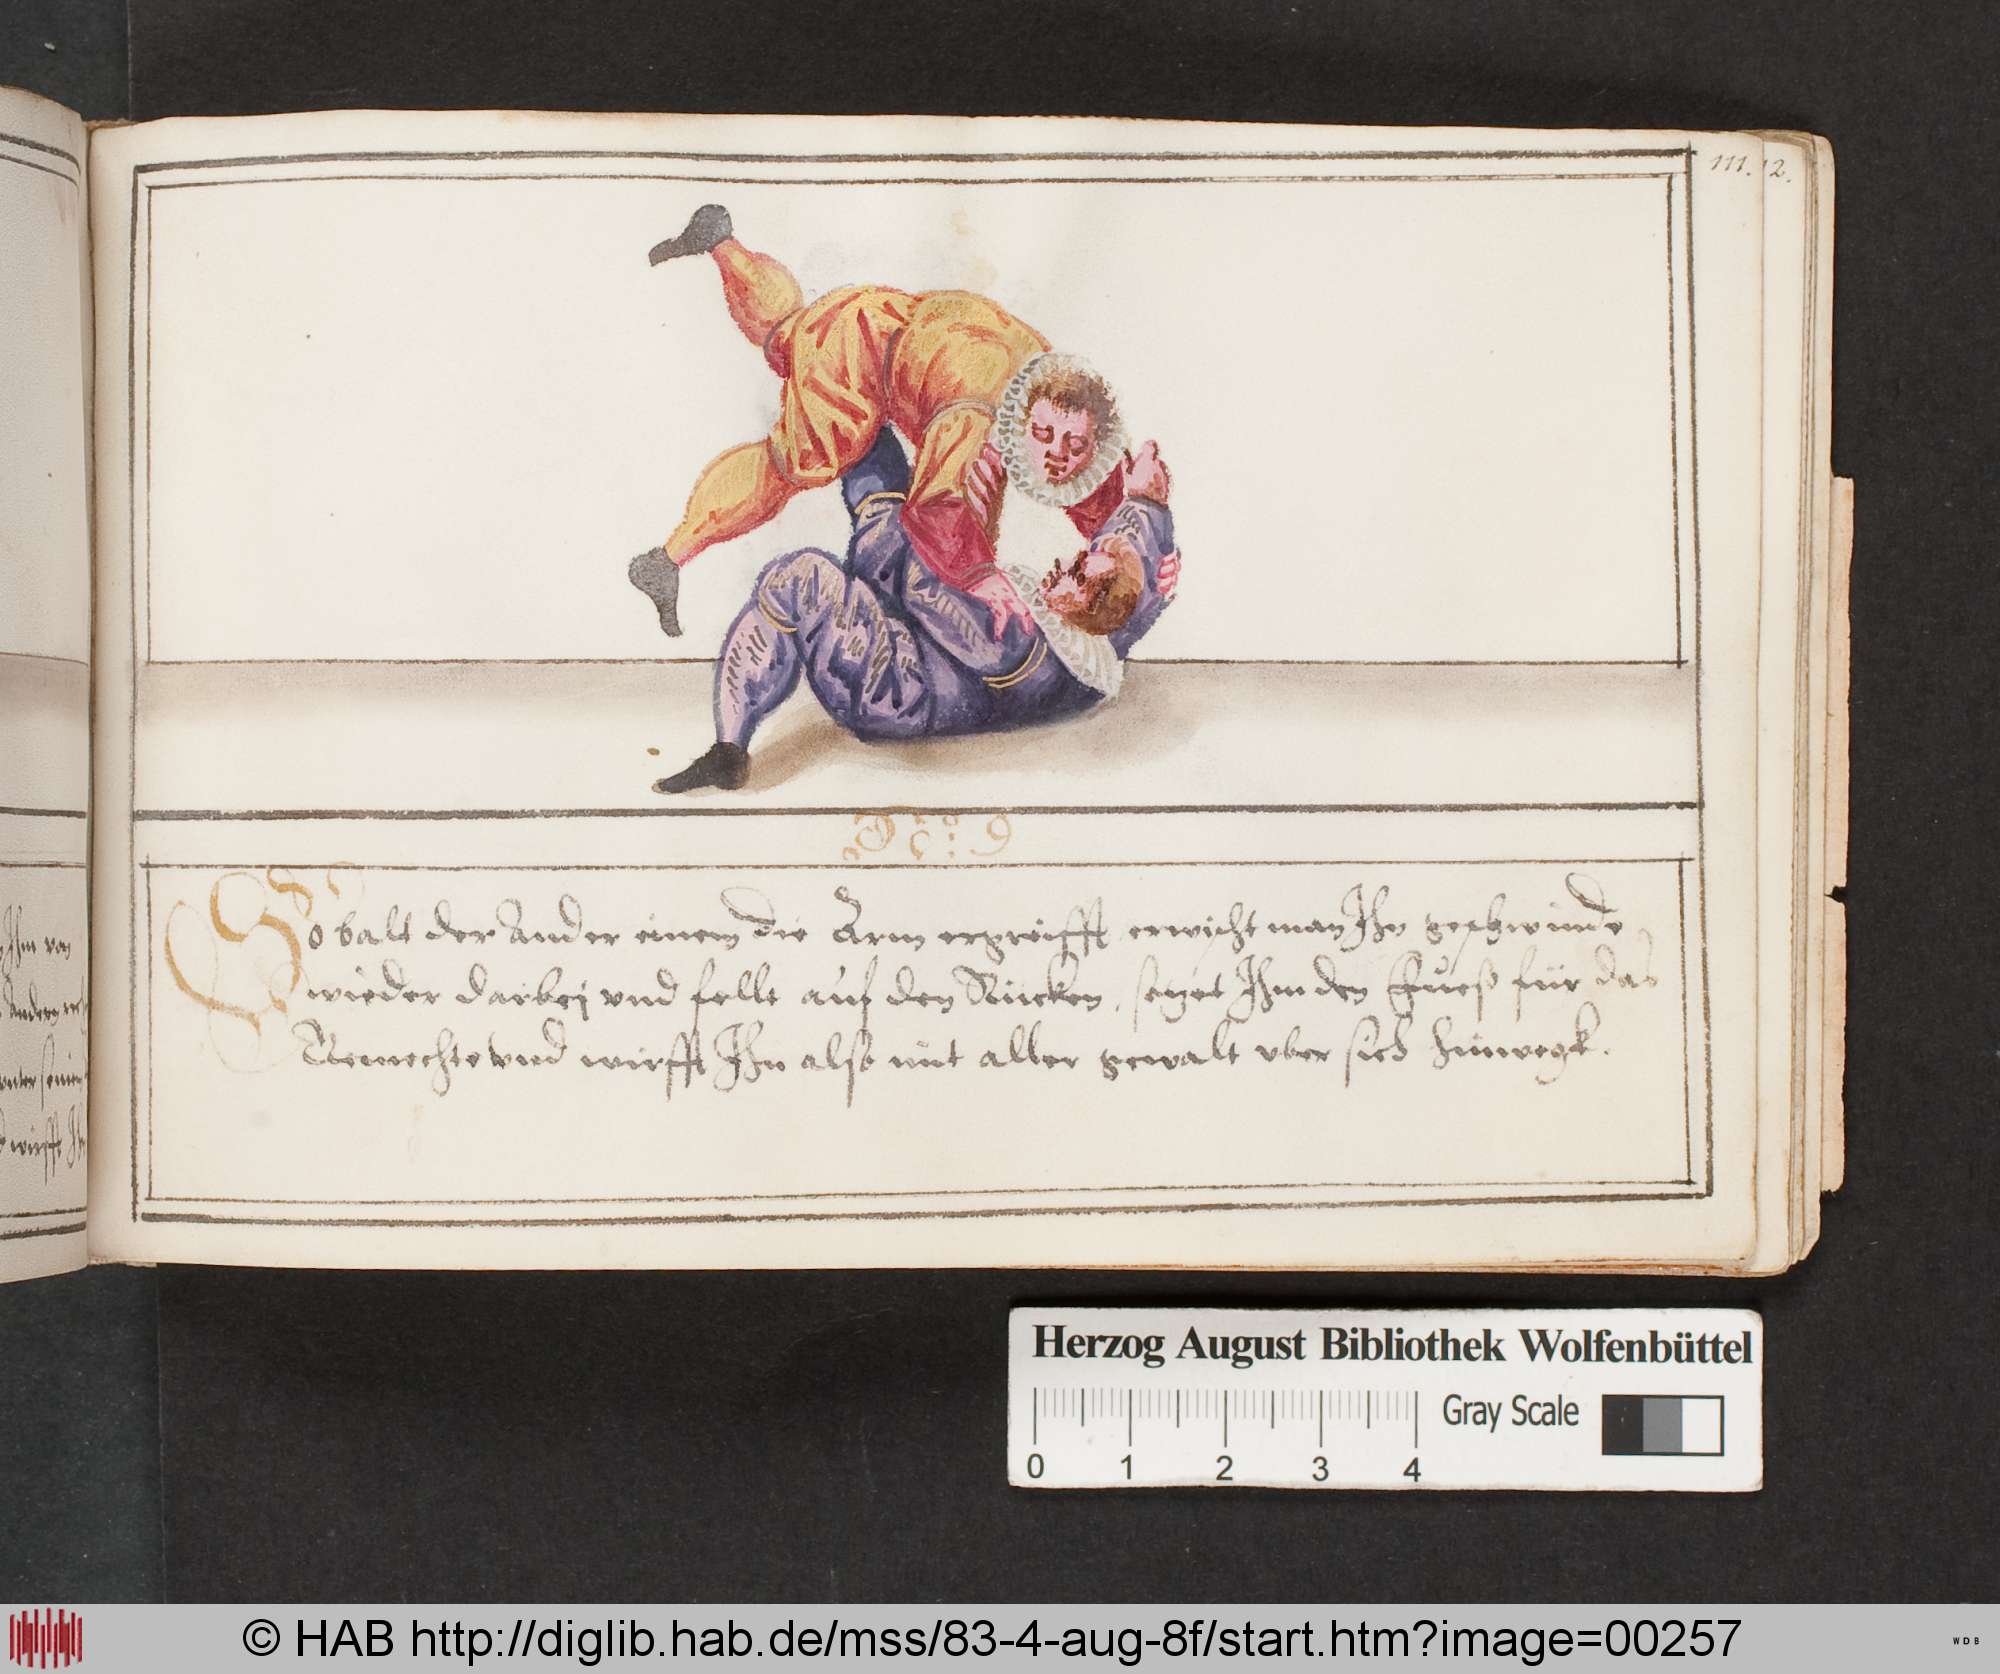 111. 12.
So balt der Ander einem die Arm ergreifft, erwischt man Ihn geschwinde
wieder darbej vnd felt auf den Rücken, setzet Ihm den Fuess für das
Gemechte vnd wirfft Ihn also mit aller gewalt vber sich hinwegk.
Ihm von
Andern
vnter seinen
wirfft Ih
Herzog August Bibliothek Wolfenbüttel
Gray Scale
0 1 2 3 4
© HAB http://diglib.hab.de/mss/83-4-aug-8f/start.htm?image=00257
WDB